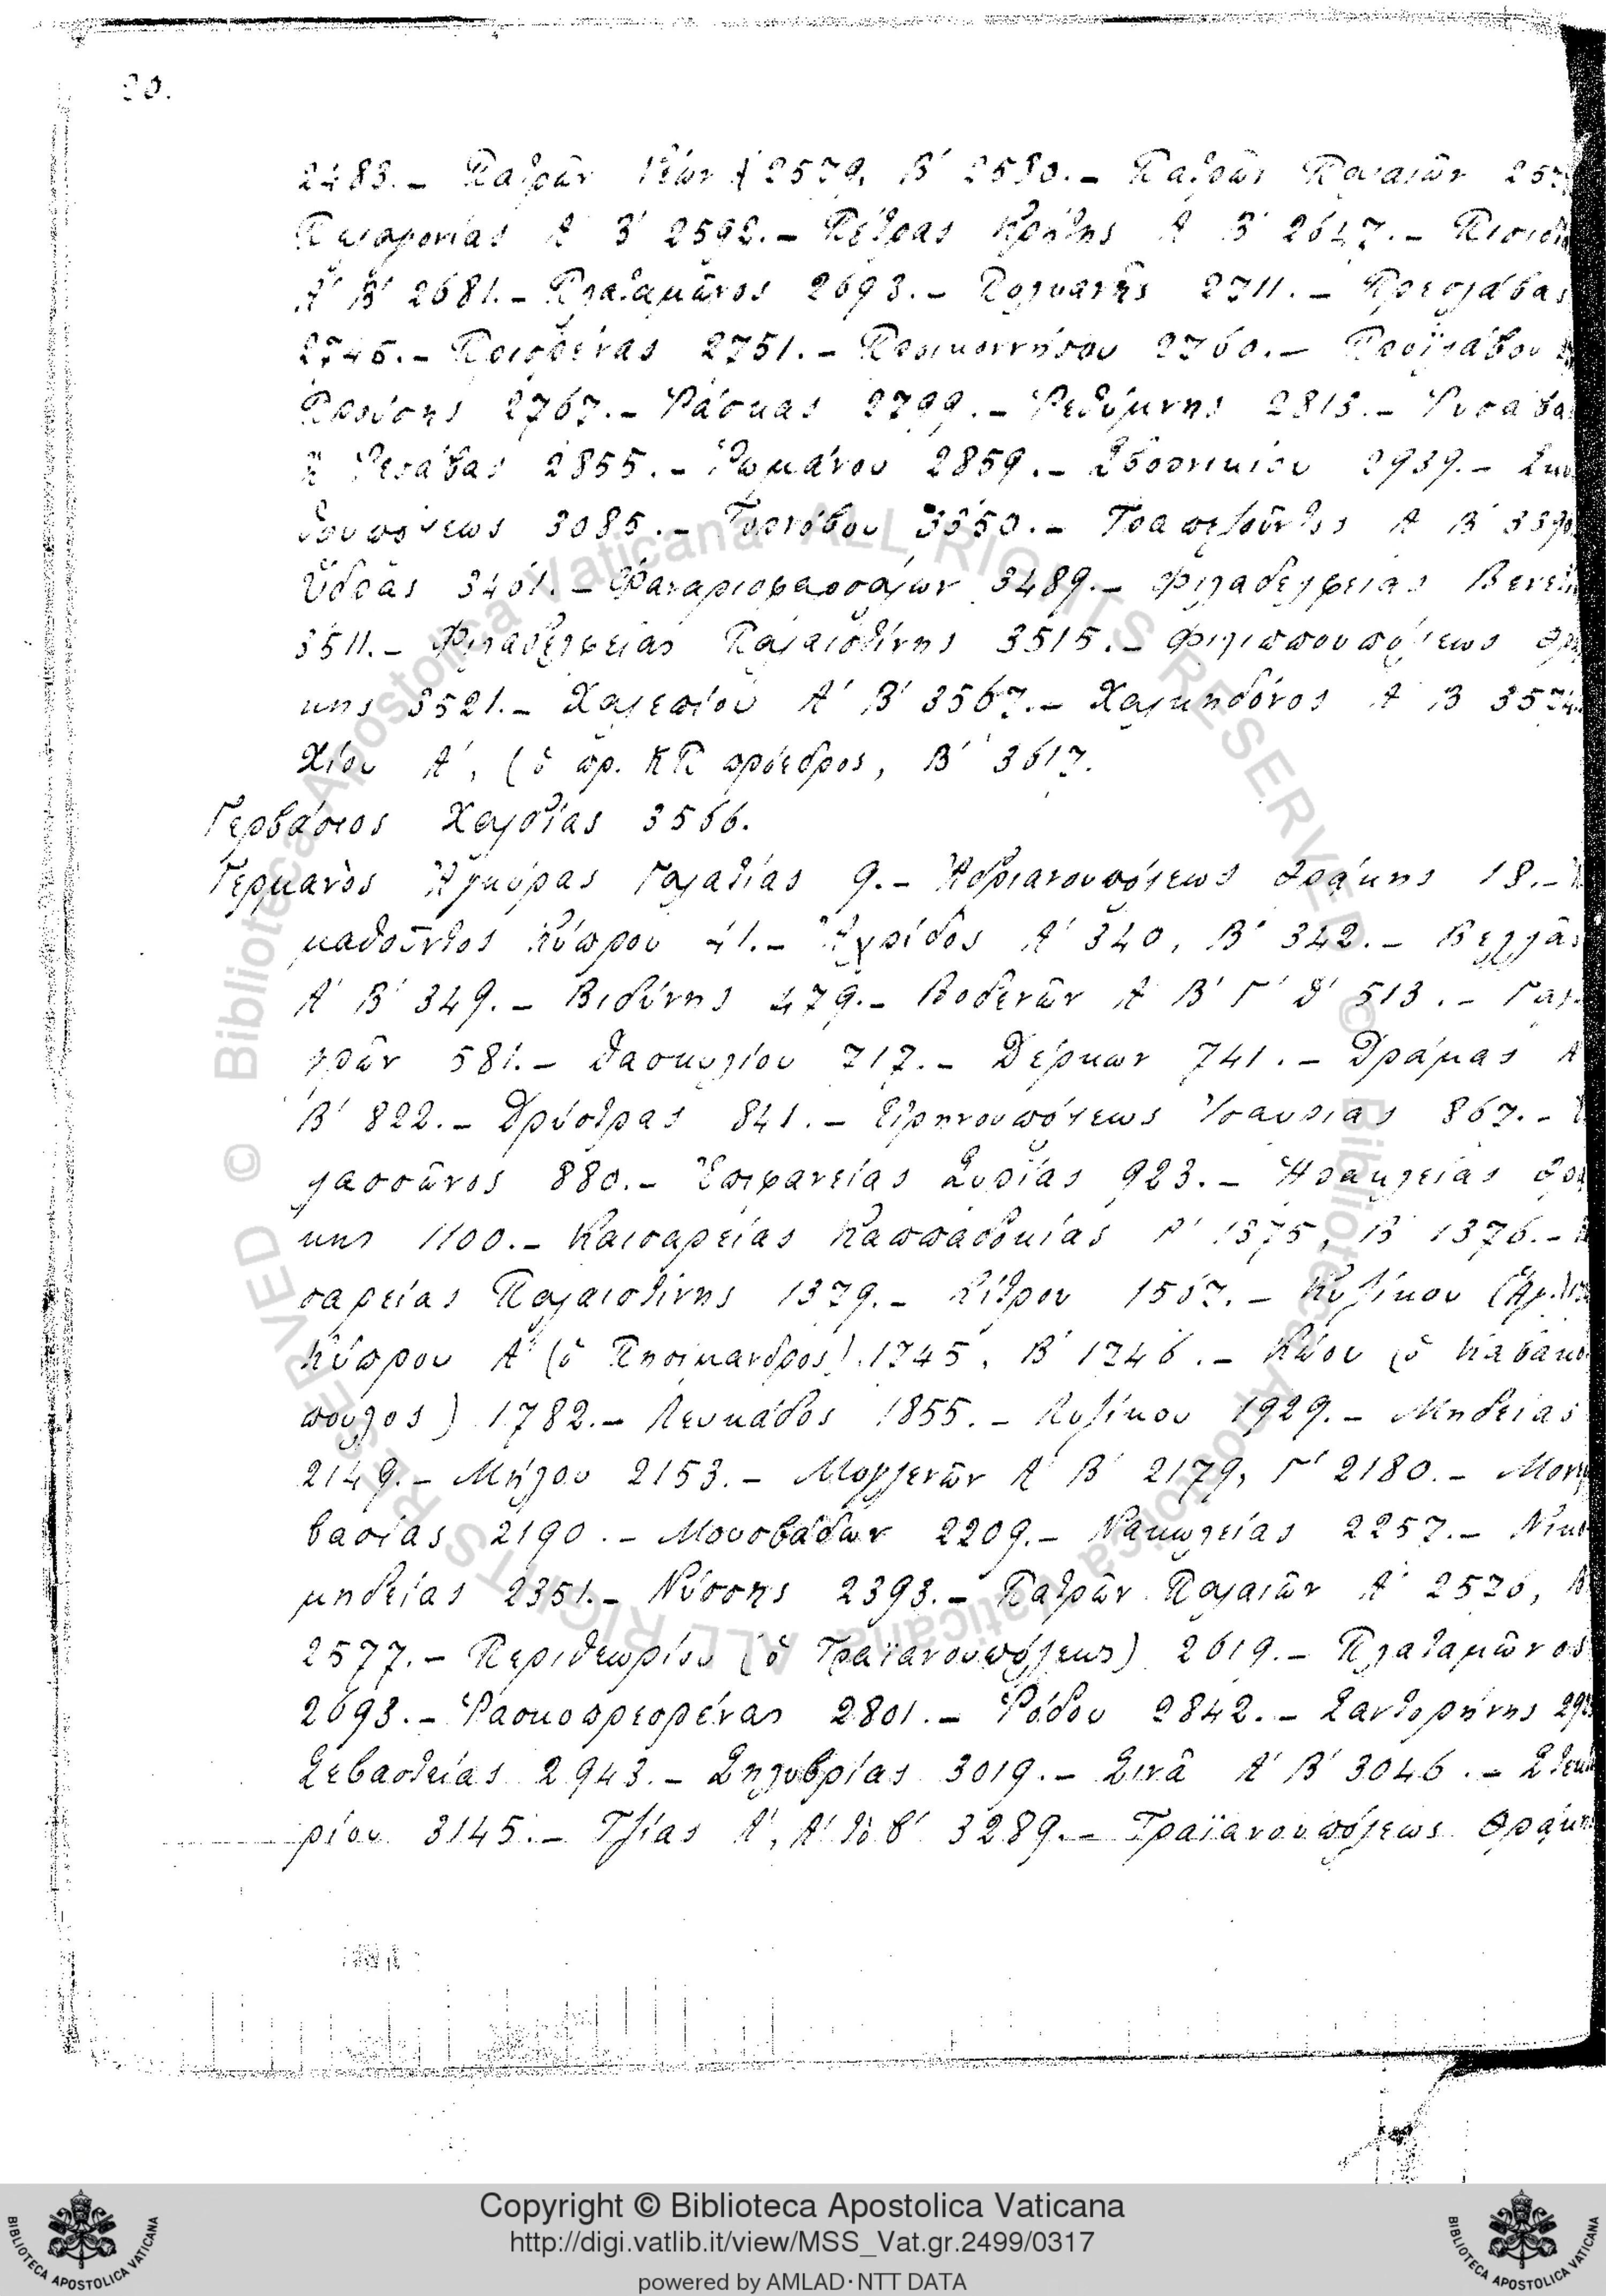 20.
2483.– Πατρῶν Νέων Α΄ 2579, Β΄ 2580.– Πατρῶν Παλαιῶν
Πελαγονίας Α΄ Β΄ 2592.– Πέτρας Κρήτης Α΄ Β΄ 2647.–
Α΄ Β΄ 2681.– Πλαταμῶνος 2693.– Πολυανῆς 2711.– Πρεσλάβας
2745.– Πρισρένας 2751.– Προικοννήσου 2760.– Προϊλάβου
Προύσης 2767.– Ῥάσκας 2799.– Ῥεθύμνης 2813.–
ἢ Ῥεσάβας 2855.– Ῥωμάνου 2859.– Σβορνικίου 2939.–
3085.– Τορνόβου 3350.– Τραπεζοῦντος Α΄ Β΄
Ὕδρας 3401.– Φαναριοφαρσάλων 3489.– Φιλαδελφείας
3511.– Φιλαδελφείας Παλαιστίνης 3515.– Φιλιππουπόλεως Θρᾴ
κης 3521.– Χαλεπίου Α΄ Β΄ 3567.– Χαλκηδόνος Α΄ Β΄
Χίου Α΄, (ὁ πρ. ΚΠ πρόεδρος, Β΄ 3617.
Γερβάσιος Χαλδίας 3566.
Γερμανὸς Ἀγκύρας Γαλατίας 9.– Ἀδριανουπόλεως Θρᾴκης 18.–
μαθοῦντος Κύπρου 41.– Ἀχρίδος Α΄ 340, Β΄ 342.– Βελλᾶς
Α΄ Β΄ 349.– Βιδύνης 479.– Βοδενῶν Α΄ Β΄ Γ΄ Δ΄ 513.–
581.– Δασκυλίου 717.– Δέρκων 741.– Δράμας Α΄
Β΄ 822.– Δρύστρας 841.– Εἰρηνουπόλεως Ἰσαυρίας 867.– Ἐ
λασσῶνος 880.– Ἐπιφανείας Συρίας 923.– Ἡρακλείας Θρᾴ
κης 1100.– Καισαρείας Καππαδοκίας Α΄ 1375, Β΄ 1376.–
σαρείας Παλαιστίνης 1379.– Κίτρου 1567.– Κυζίκου
Κύπρου Α΄ (ὁ Πησίμανδρος) 1745, Β΄ 1746.– Κώου (ὁ Καβακό
πουλος) 1782.– Λευκάδος 1855.– Λυζίκου 1929.– Μηδείας
2149.– Μήλου 2153.– Μογλενῶν Α΄ Β΄ 2179, Γ΄ 2180.– Μονεμ
βασίας 2190.– Μουσβάδων 2209.– Νακωλείας 2257.– Νικο
μηδείας 2351.– Νύσσης 2393.– Πατρῶν Παλαιῶν Α΄ 2576, Β΄
2577.– Περιθεωρίου (ὁ Τραϊανουπόλεως) 2619.– Πλαταμῶνος
2693.– Ῥασκοπρεσρένας 2801.– Ῥόδου 2842.– Σαντορήνης
Σεβαστείας 2943.– Σηλυβρίας 3019.– Σινᾶ Α΄ Β΄ 3046.–
ρίου 3145.– Τζίας Α΄, Α΄ τὸ β΄ 3289.– Τραϊανουπόλεως Θρᾴκης
Copyright © Biblioteca Apostolica Vaticana
http://digi.vatlib.it/view/MSS_Vat.gr.2499/0317
powered by AMLAD·NTT DATA